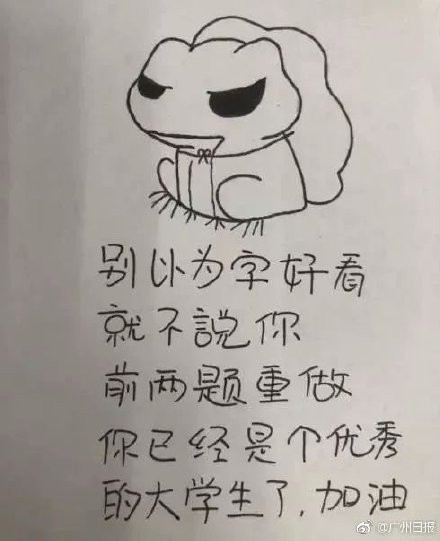 别以为字好看
就不說你
前两题重做
你已经是个优秀
的大学生了,加油
@广州日报